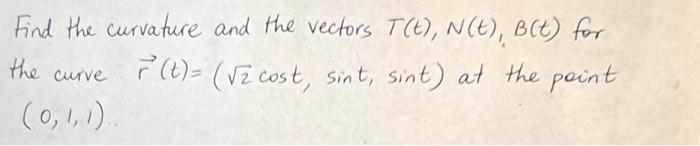 Find the curvature and the vectors T(t), N(t), B(t) for
the curve r⃗(t)= (√2 cost, sint, sint) at the point
(0,1,1)..